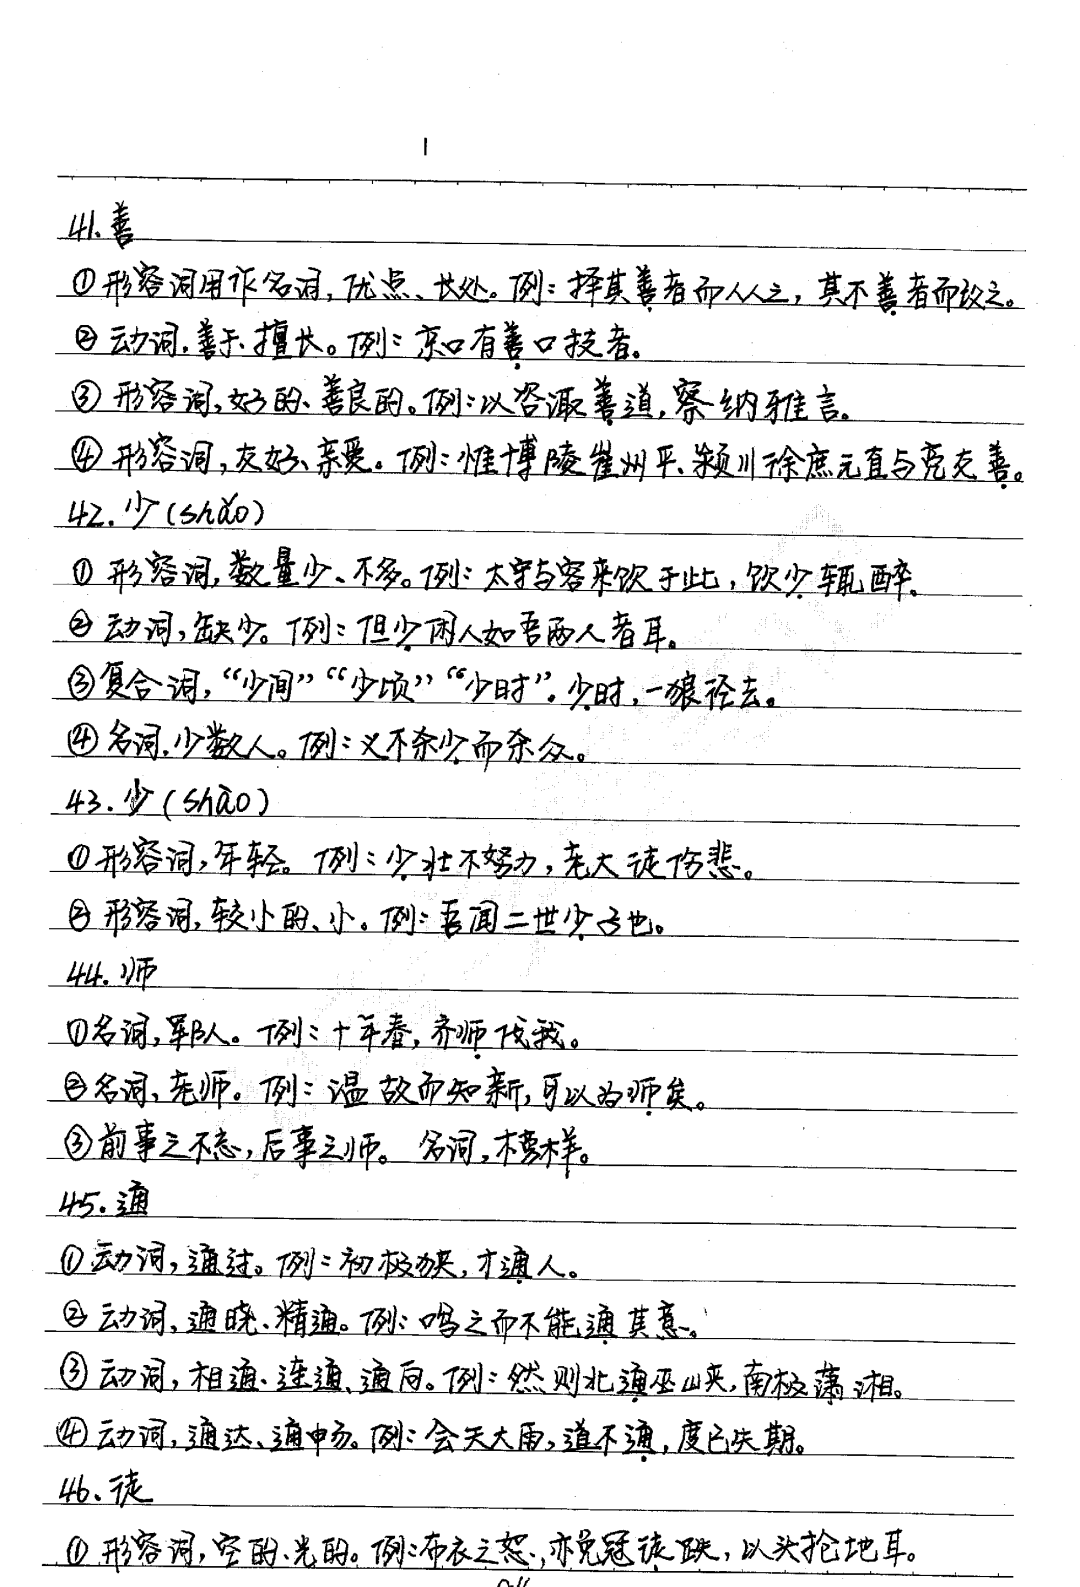 41.善
①形容词用作名词,优点、长处。例:择其善者而从之,其不善者而改之。
②动词,善于、擅长。例:京口有善口技者。
③形容词,好的、善良的。例:以咨诹善道,察纳雅言。
④形容词,友好、亲爱。例:惟博陵崔州平、颍川徐庶元直与亮友善。
42.少(shǎo)
①形容词,数量少、不多。例:太守与客来饮于此,饮少辄醉。
②动词,缺少。例:但少闲人如吾两人者耳。
③复合词,“少间”“少顷”“少时”。少时,一狼径去。
④名词,少数人。例:义不杀少而杀众。
43.少(shào)
①形容词,年轻。例:少壮不努力,老大徒伤悲。
②形容词,较小的、小。例:吾闻二世少子也。
44.师
①名词,军队。例:十年春,齐师伐我。
②名词,老师。例:温故而知新,可以为师矣。
③前事之不忘,后事之师。名词,榜样。
45.通
①动词,通过。例:初极狭,才通人。
②动词,通晓、精通。例:鸣之而不能通其意。
③动词,相通、连通、通向。例:然则北通巫山夹,南极潇湘。
④动词,通达、通畅。例:会天大雨,道不通,度已失期。
46.徒
①形容词,空的、光的。例:布衣之怒,亦免冠徒跣,以头抢地耳。